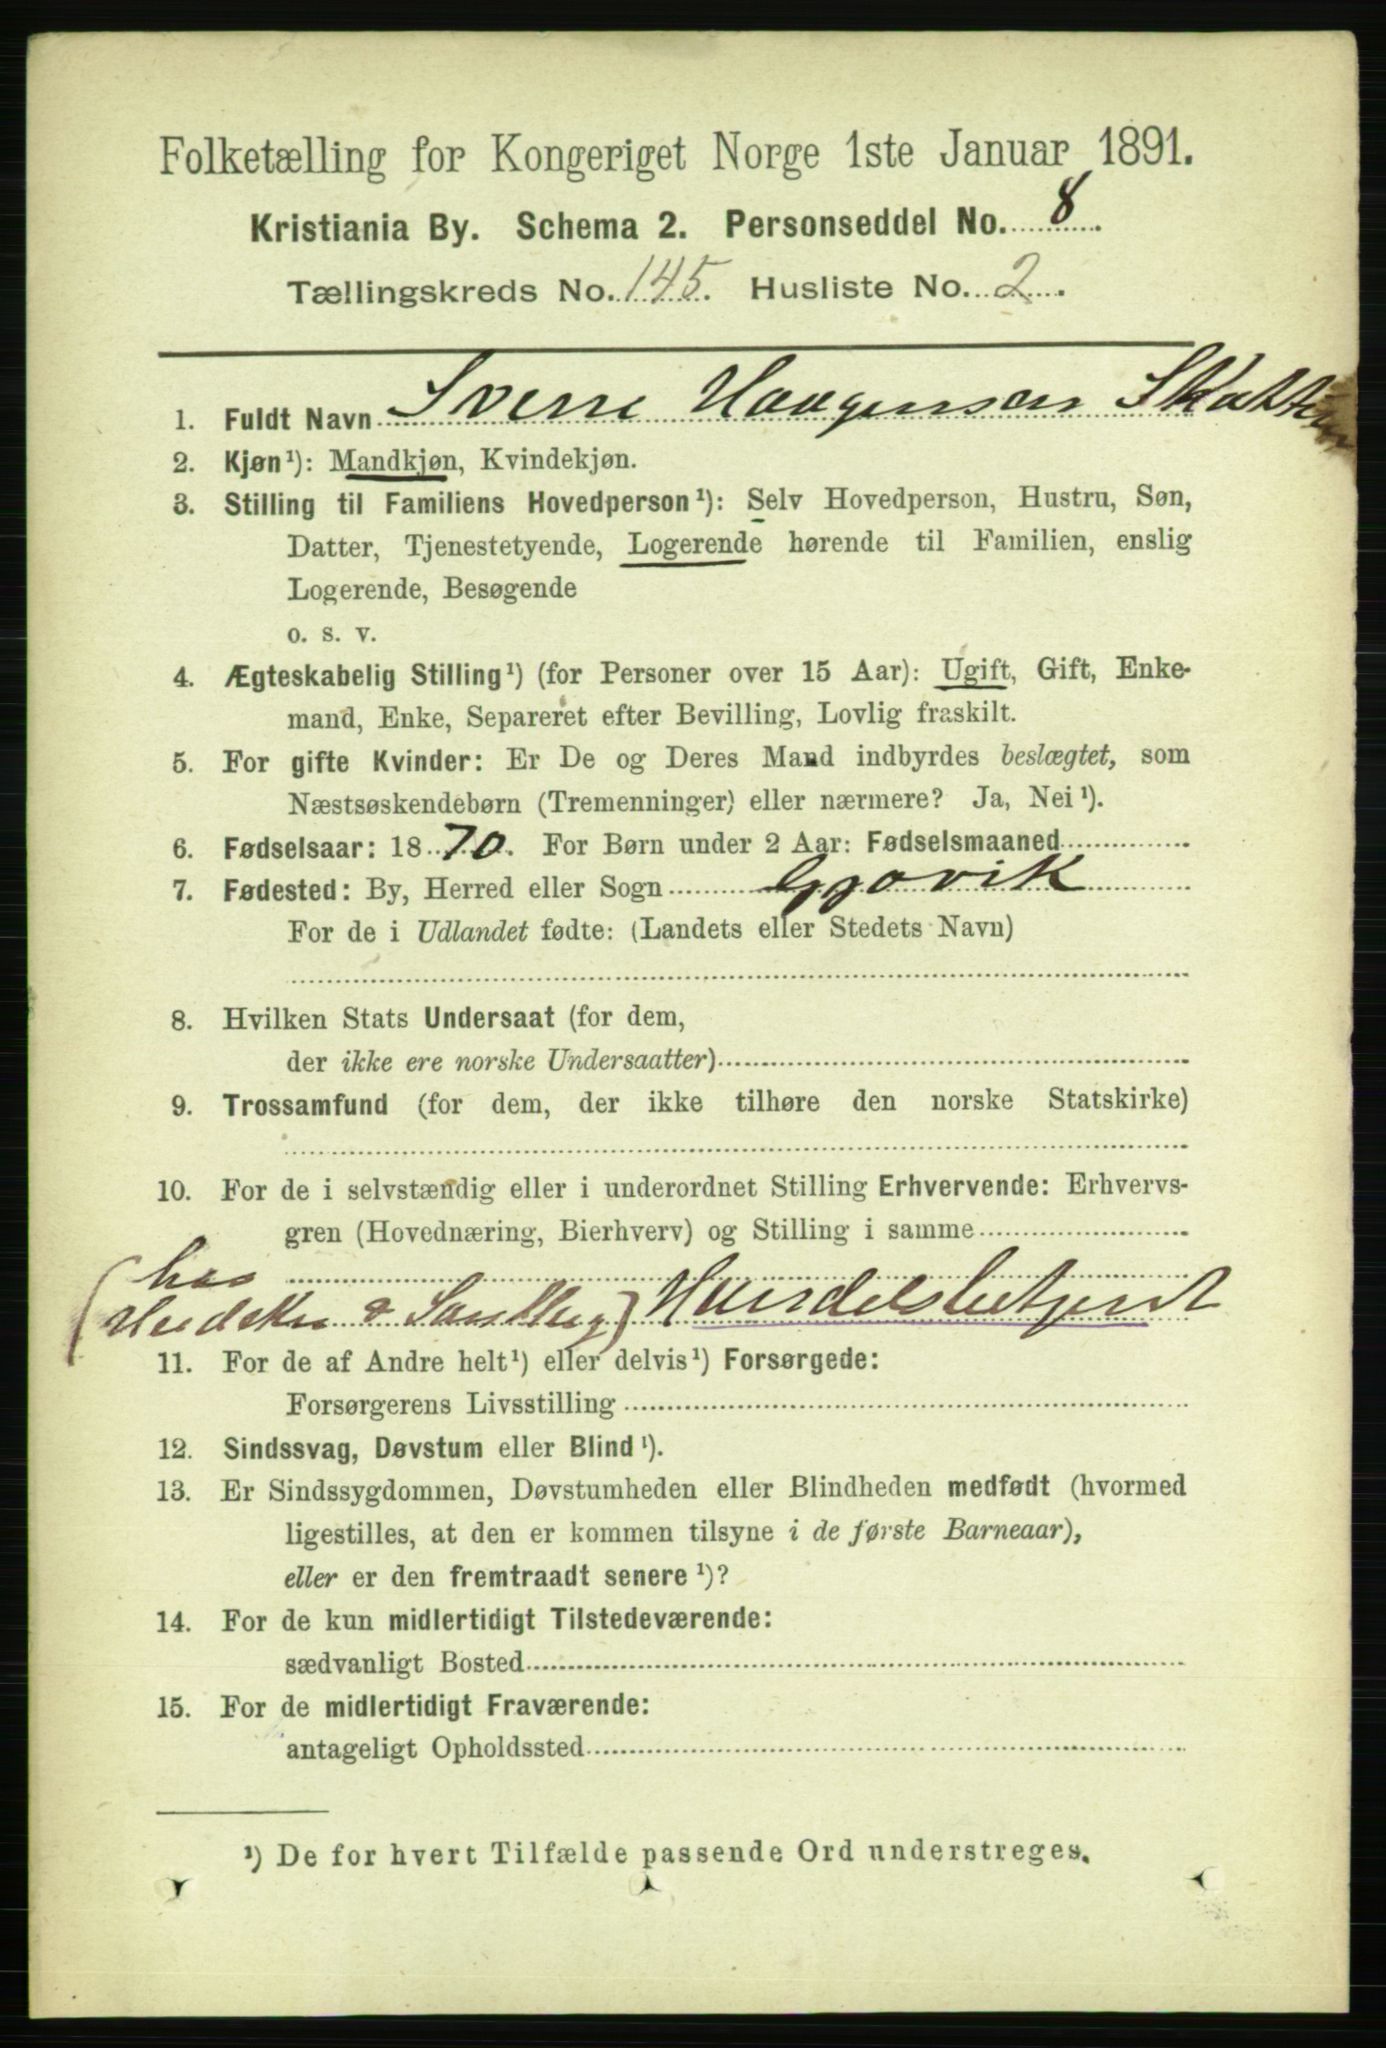 Folketælling for Kongeriget Norge 1ste Januar 1891.
Kristiania By. Schema 2. Personseddel No. 8.
Tællingskreds No. 145. Husliste No. 2.
1. Fuldt Navn Sverre Haagensen
2. Kjøn¹): Mandkjøn, Kvindekjøn.
3. Stilling til Familiens Hovedperson¹): Selv Hovedperson, Hustru, Søn,
Datter, Tjenestetyende, Logerende hørende til Familien, enslig
Logerende, Besøgende
o. s. v.
4. Ægteskabelig Stilling¹) (for Personer over 15 Aar): Ugift, Gift, Enke-
mand, Enke, Separeret efter Bevilling, Lovlig fraskilt.
5. For gifte Kvinder: Er De og Deres Mand indbyrdes beslægtet, som
Næstsøskendebørn (Tremenninger) eller nærmere? Ja, Nei¹).
6. Fødselsaar: 1870. For Børn under 2 Aar: Fødselsmaaned
7. Fødested: By, Herred eller Sogn Gjøvik
For de i Udlandet fødte: (Landets eller Stedets Navn)
8. Hvilken Stats Undersaat (for dem,
der ikke ere norske Undersaatter)
9. Trossamfund (for dem, der ikke tilhøre den norske Statskirke)
10. For de i selvstændig eller i underordnet Stilling Erhvervende: Erhvervs-
gren (Hovednæring, Bierhverv) og Stilling i samme
(hos
& Sandberg) Handelsbetjent
11. For de af Andre helt¹) eller delvis¹) Forsørgede:
Forsørgerens Livsstilling
12. Sindssvag, Døvstum eller Blind¹).
13. Er Sindssygdommen, Døvstumheden eller Blindheden medfødt (hvormed
ligestilles, at den er kommen tilsyne i de første Barneaar),
eller er den fremtraadt senere¹)?
14. For de kun midlertidigt Tilstedeværende:
sædvanligt Bosted
15. For de midlertidigt Fraværende:
antageligt Opholdssted
¹) De for hvert Tilfælde passende Ord understreges.